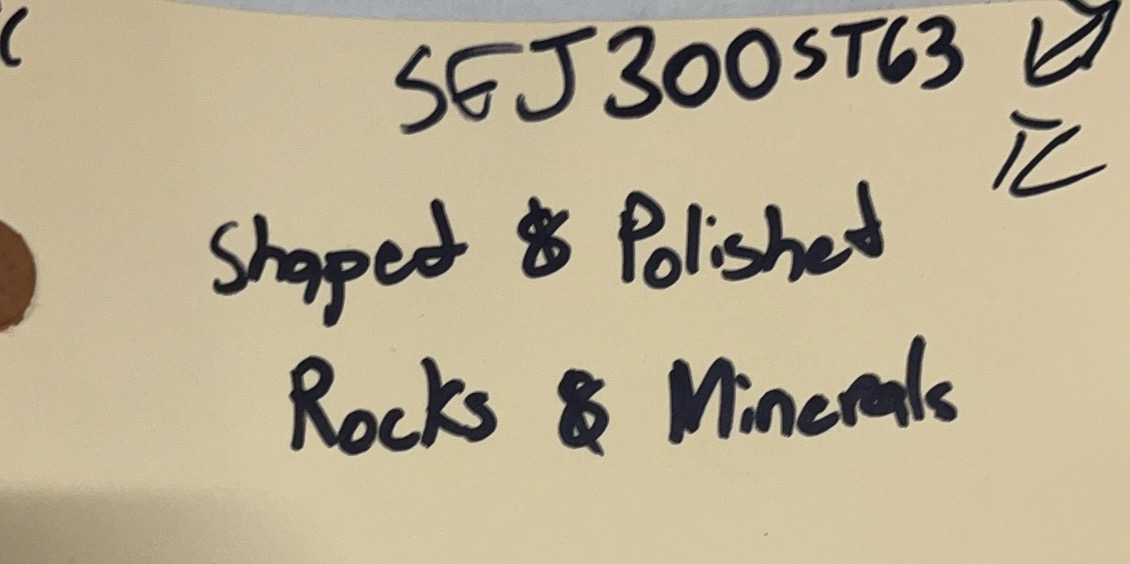 SEJ300ST63
IC
Shaped & Polished
Rocks & Minerals